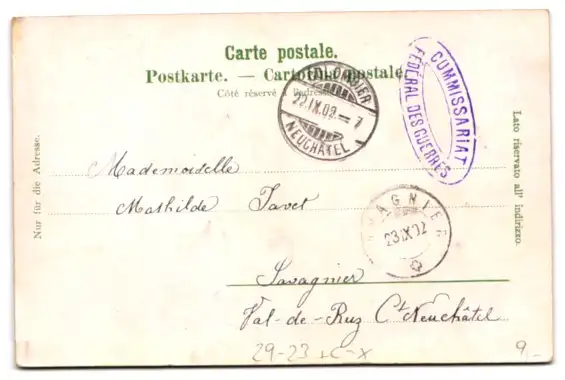 Carte postale.
Postkarte. — Cartolina postale.
Côté réservé à l'adresse.
COLOMBIER
22.IX.02–7
NEUCHÂTEL
COMMISSARIAT
FÉDÉRAL DES GUERRES
Nur für die Adresse.
Lato riservato all' indirizzo.
Mademoiselle
Mathilde Javet
SAVAGNIER
23.IX.02
Savagnier
Val-de-Ruz Ct Neuchâtel
29-23 +C-X
9,-